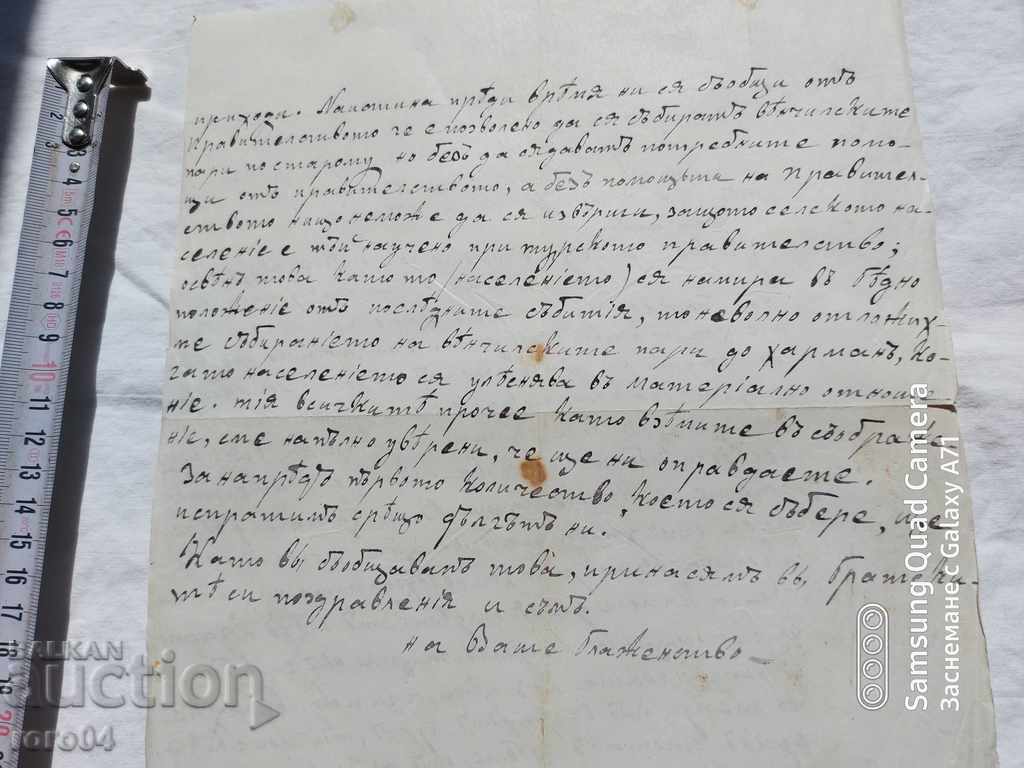 приходи. Наистина прѣди врѣмя ни ся съобщи отъ
Правителството че е позволено да ся събиратъ вѣнчилските
пари по старому но безъ да
отъ правителството, а безъ помощьта на Правител-
ството нищо неможе да ся извърши, защото селското на-
селеніе е тъй научено при турското правителство;
освѣнъ това като то (населеніето) ся намира въ бѣдно
положеніе отъ послѣдните събитія, то неволно отложих-
ме събираніето на вѣнчилските пари до харманъ, ко-
гато населеніето ся улѣснява въ матеріално отноше
ніе. тія всичкитѣ прочее като взѣмите въ съображе
ніе, сме напълно увѣрени, че ще ни оправдаете.
Занапрѣдъ първото количество, което ся събере, ще
испратимъ срѣщо дългътъ ни.
Като вы съобщавамъ това, принасямъ вы братски-
тѣ си поздравленія и съмъ.
на Ваше блаженство
BALKAN
auction
toro04
Samsung Quad Camera
Заснемане с Galaxy A71